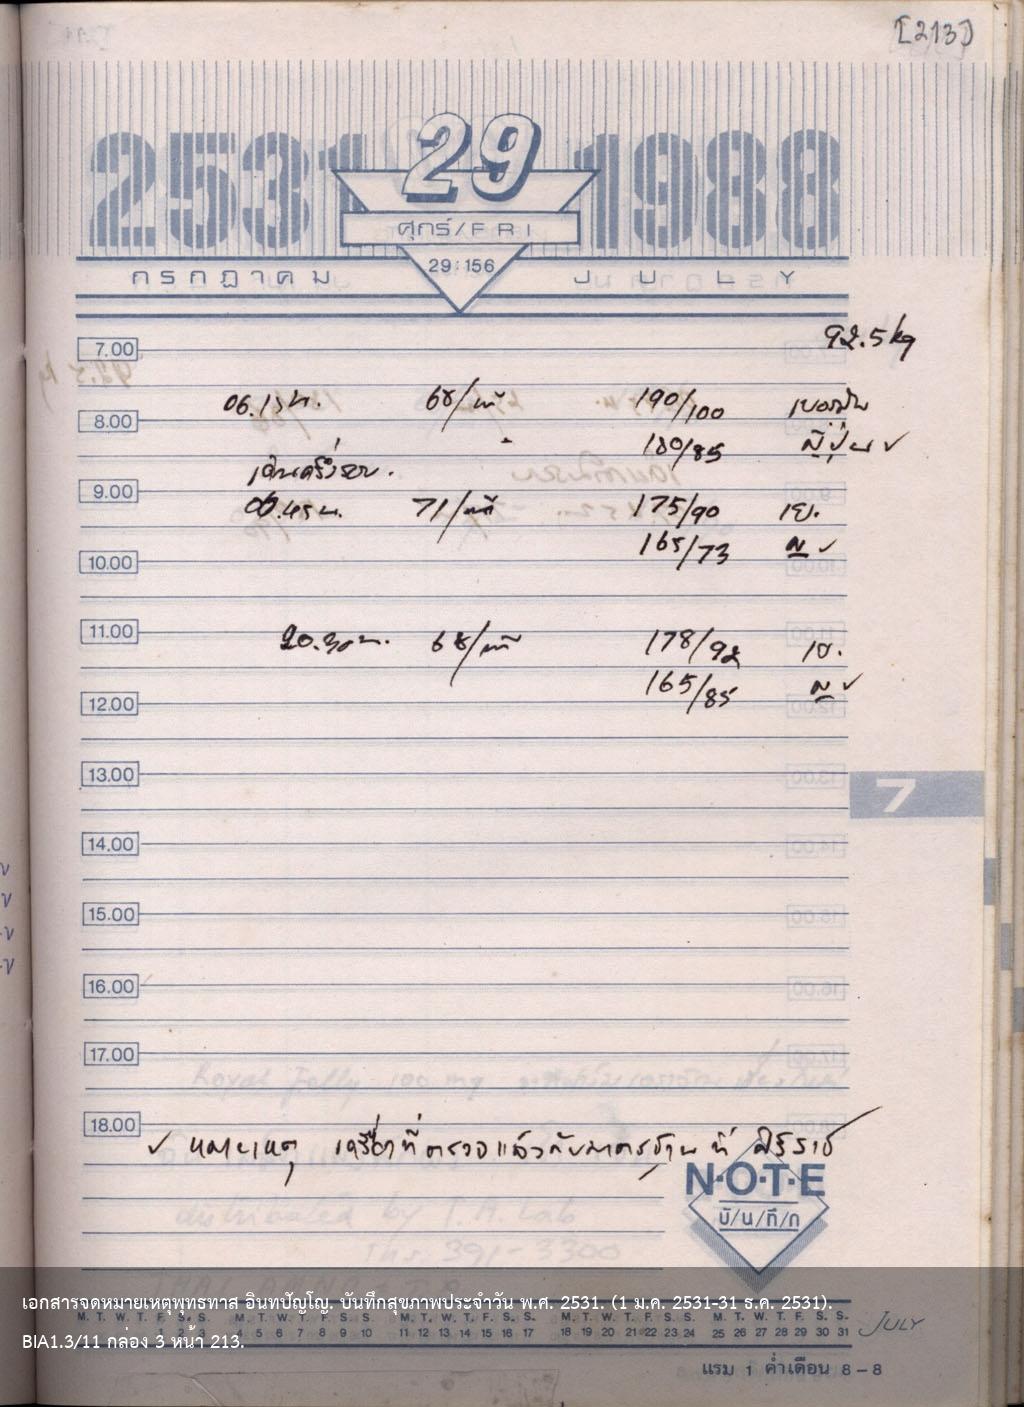 [213]
2531 29 1988
ศุกร์/FRI
29:156
กรกฎาคม JULY
92.5 kg
7.00
06.15 น. 68/นาที 190/100 เยอรมัน
8.00
180/85 ญี่ปุ่น ✓
เดินครึ่งรอบ.
9.00
06.45 น. 71/นาที 175/90 เย.
165/73 ญ ✓
10.00
11.00
20.30 น. 68/นาที 178/92 เย.
165/85 ญ ✓
12.00
13.00
7
14.00
15.00
16.00
17.00
18.00
✓ หมายเหตุ เครื่องที่ตรวจแล้วกับมาตรฐาน ที่ ศิริราช
N·O·T·E
บั/น/ทึ/ก
เอกสารจดหมายเหตุพุทธทาส อินทปัญโญ. บันทึกสุขภาพประจำวัน พ.ศ. 2531. (1 ม.ค. 2531-31 ธ.ค. 2531).
M. T. W. T. F. S. S. M. T. W. T. F. S. S. M. T. W. T. F. S. S. M. T. W. T. F. S. S. M. T. W. T. F. S. S.
1 2 3 4 5 6 7 8 9 10 11 12 13 14 15 16 17 18 19 20 21 22 23 24 25 26 27 28 29 30 31 JULY
BIA1.3/11 กล่อง 3 หน้า 213.
แรม 1 ค่ำเดือน 8-8